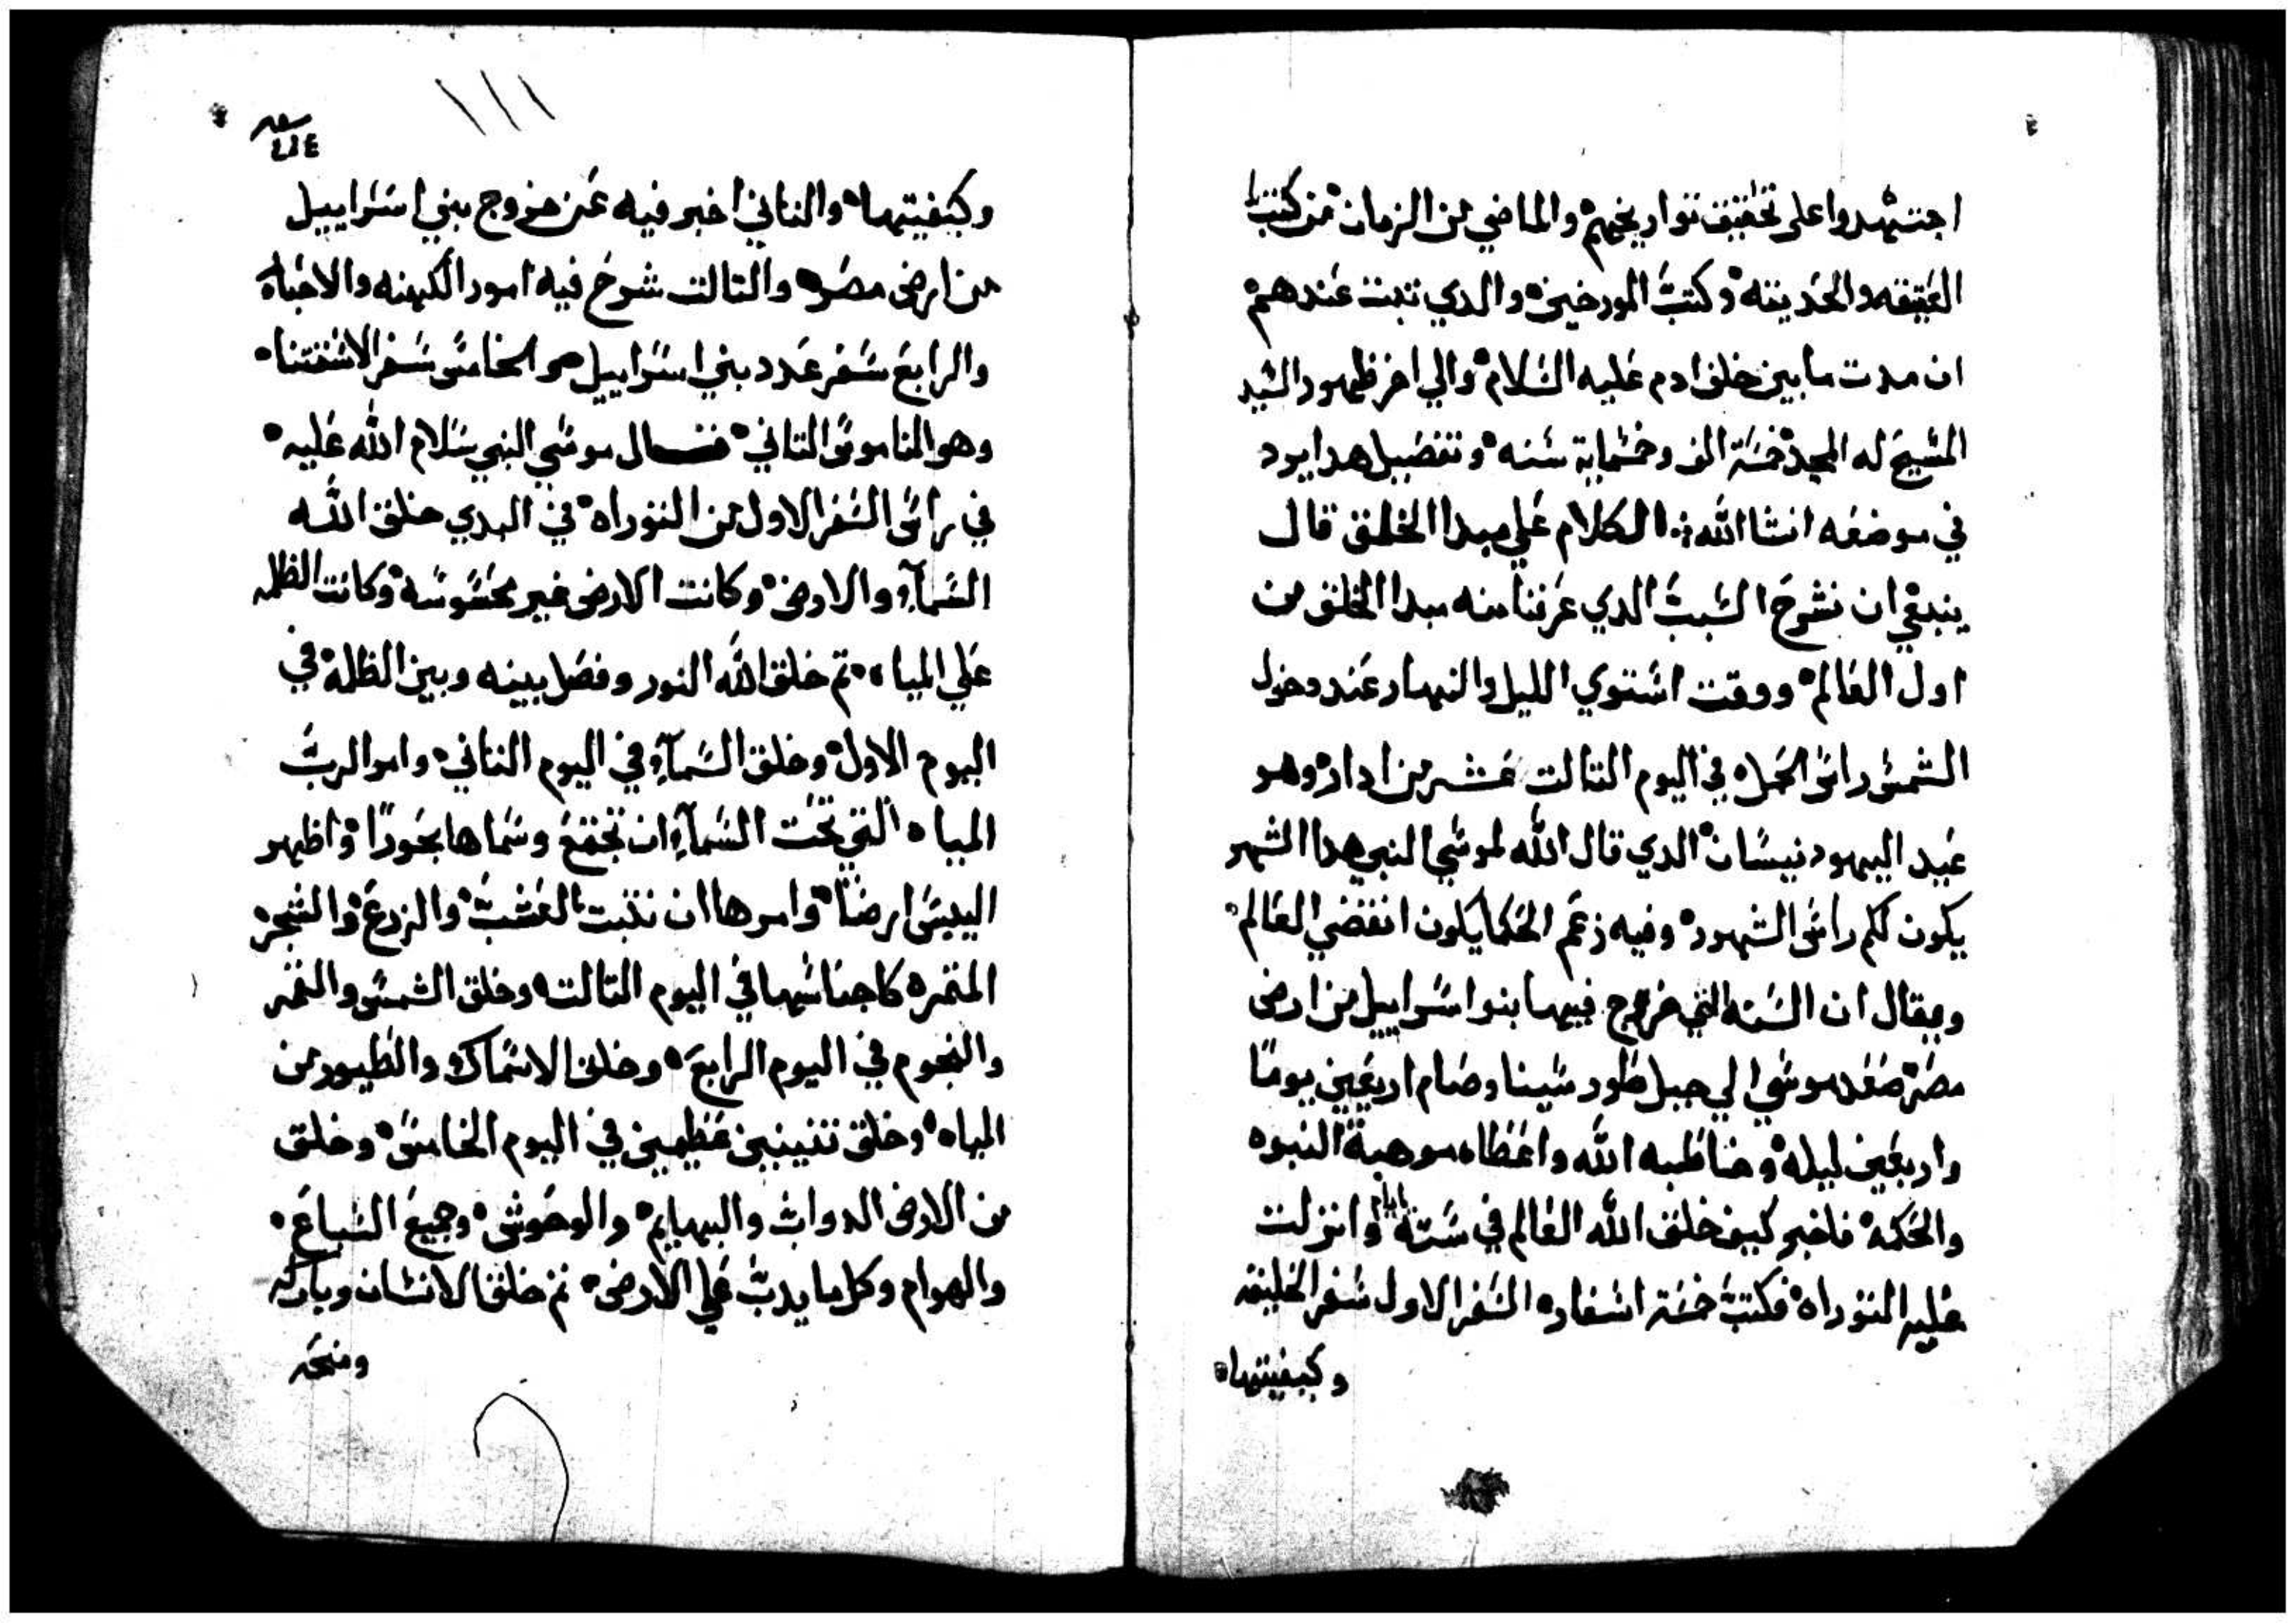 اجتهدوا على تحقيق تواريخهم والماضي من الزمان من كتبنا
العتيقه والحديثه وكتب المورخين والدي تبت عندهم
ان مدت ما بين خلق ادم عليه السلام والي اخر ظهور السيد
المسيح له المجد خمسة الف وخمسماية سنه وتفصيل هدا يرد
في موضعه انشا الله الكلام علي مبدا الخلق قال
ينبغي ان نشرح السبب الدي عرفنا منه مبدا الخلق من
اول العالم ووقت استوي الليل والنهار عند دخول
الشمس راس الحمل في اليوم التالت عشر من ادار وهو
عيد اليهود نيسان الدي قال الله لموسي النبي هدا الشهر
يكون لكم راس الشهور وفيه زعم الحكما يكون انقضي العالم
ويقال ان السنه التي خرج فيها بنوا اسراييل من ارض
مصر صعد موسي الي جبل طور سينا وصام اربعين يومًا
واربعين ليله وخاطبه الله واعطاه موهبة النبوه
والحكمه فاخبر كيف خلق الله العالم في ستة ايام وانزلت
عليه التوراه فكتب خمسة اسفار السفر الاول سفر الخليقه
وكيفيتها
وكيفيتها والتاني اخبر فيه عن خروج بني اسراييل
من ارض مصر والتالت شرح فيه امور الكهنه والاحباه
والرابع سفر عدد بني اسراييل والخامس سفر الاستتنا
وهو الناموس التاني فقال موسي النبي سلام الله عليه
في راس السفر الاول من التوراه في البدي خلق الله
السمآء والارض وكانت الارض غير محسوسه وكانت الظلمه
علي المياه تم خلق الله النور وفصل بينه وبين الظلمة في
اليوم الاول وخلق السمآء في اليوم التاني وامر الرب
المياه التي تحت السمآء ان تجتمع وسماها بحورًا واظهر
اليبس ارضًا وامرها ان تنبت العشب والزرع والشجر
المتمره كاجناسها في اليوم التالت وخلق الشمس والقمر
والنجوم في اليوم الرابع وخلق الاسماك والطيور من
المياه وخلق تنينين عظيمين في اليوم الخامس وخلق
من الارض الدواب والبهايم والوحوش وجميع السباع
والهوام وكل ما يدب علي الارض تم خلق الانسان وباركه
ومنحه